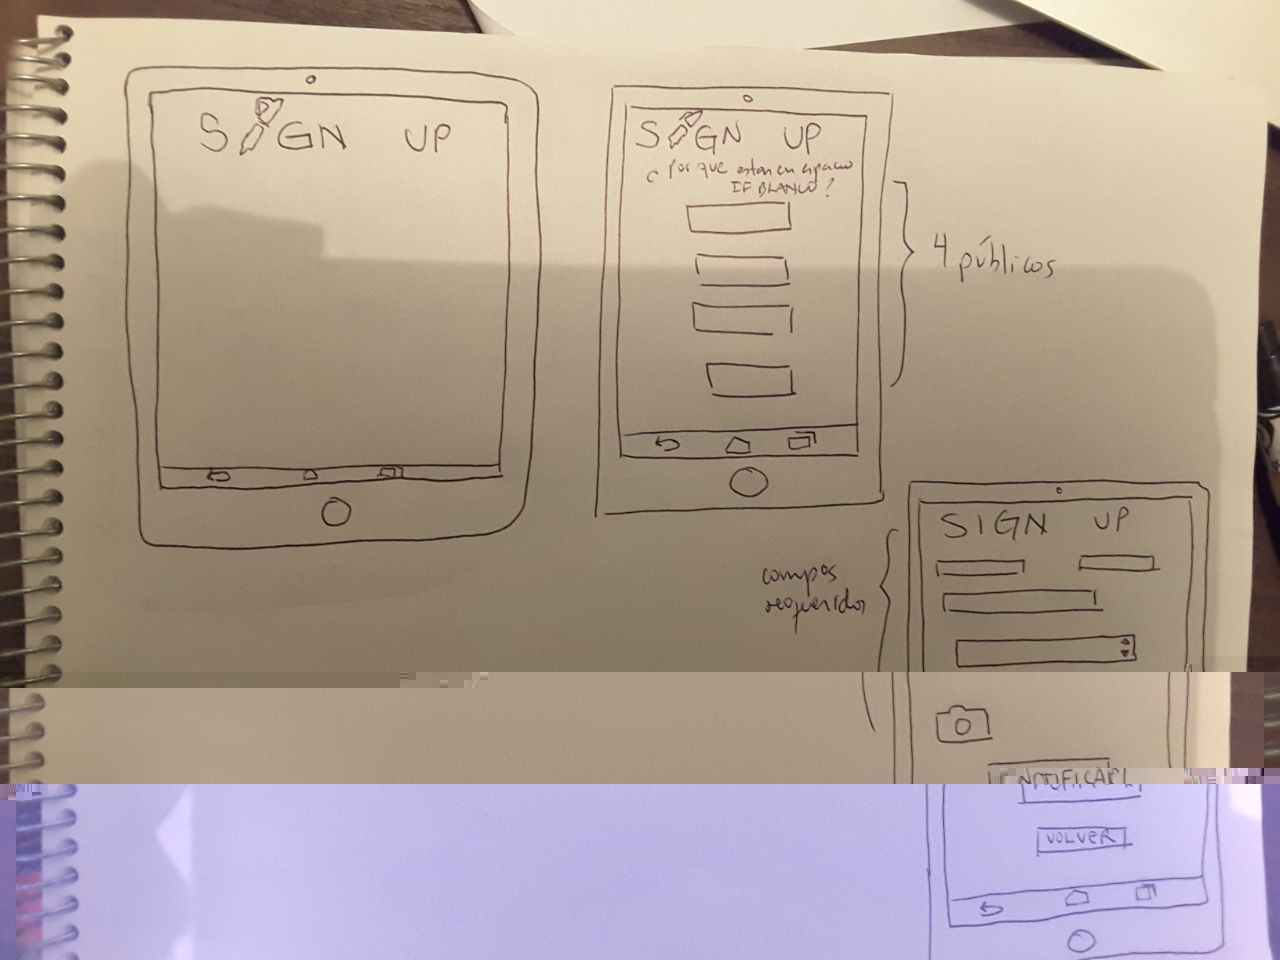 SIGN UP
SIGN UP
¿Por que estan en espacio
EF BLANCO?
4 públicos
SIGN UP
campos
requeridos
NOTIFICAR
VOLVER